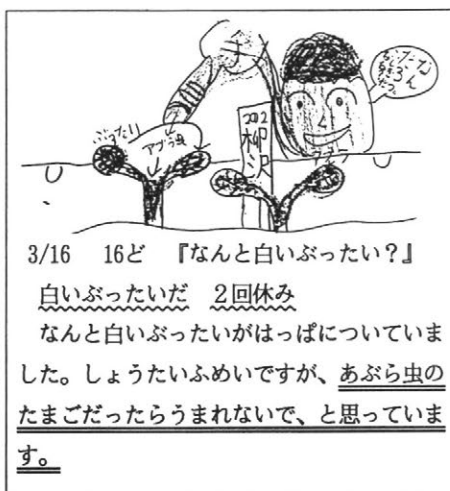 ぶったい
アブラ虫
202
柳
沢
3/16 16ど 『なんと白いぶったい?』
白いぶったいだ 2回休み
なんと白いぶったいがはっぱについていま
した。しょうたいふめいですが、あぶら虫の
たまごだったらうまれないで、と思っていま
す。